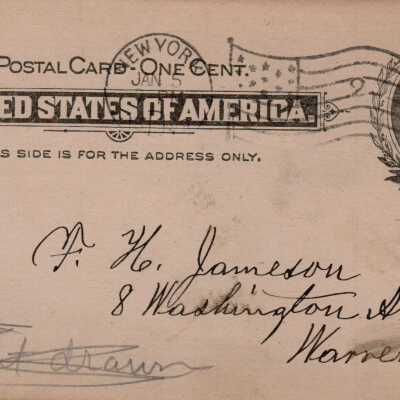 NEW YORK
JAN 5
POSTAL CARD - ONE CENT.
ED STATES OF AMERICA.
2
S SIDE IS FOR THE ADDRESS ONLY.
F. H. Jameson
8 Washington A
Warre
drawn